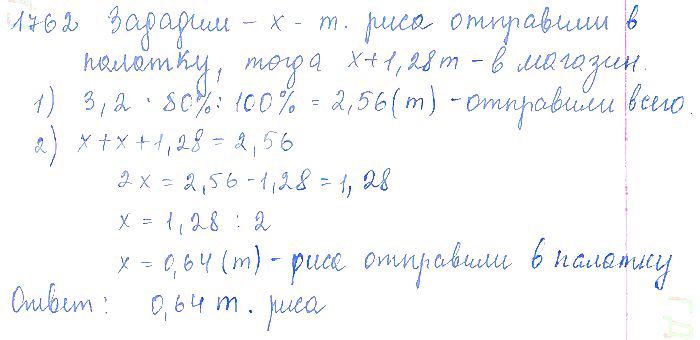 1762 Зададим - x - т. риса отправили в
палатку, тогда x+1,28т - в магазин.
1) 3,2 · 80% : 100% = 2,56(т) - отправили всего.
2) x+x+1,28 = 2,56
2x = 2,56-1,28 = 1,28
x = 1,28 : 2
x = 0,64(т) - риса отправили в палатку
Ответ: 0,64 т. риса